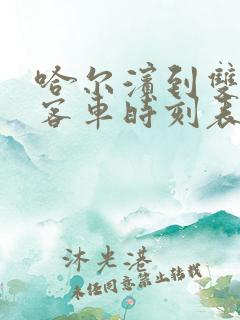 哈尔滨到雙
客車時刻表
沐光港
未经同意禁止转载